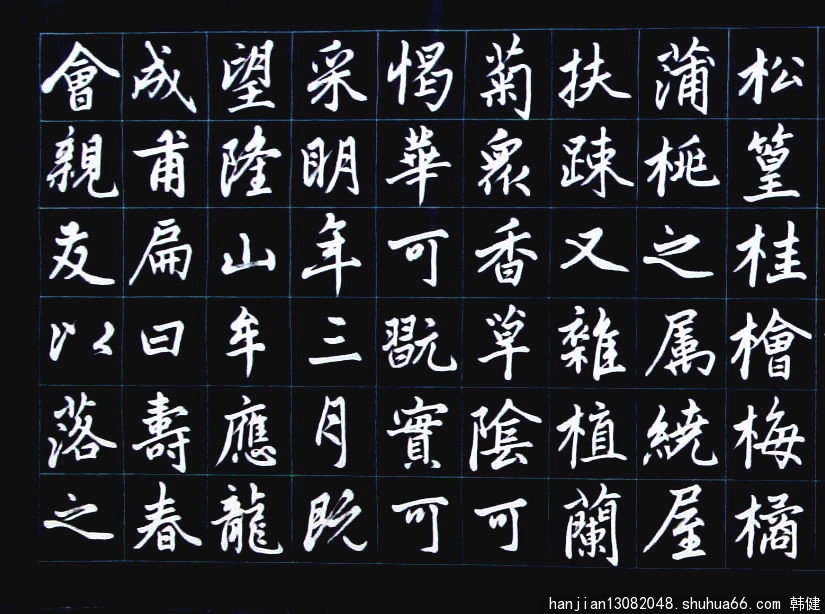 松篁桂檜梅橘
蒲桃之属繞屋
扶踈又雜植蘭
菊衆香草陰可
愒華可翫實可
采明年三月既
望隆山牟應龍
成甫扁曰壽春
會親友以落之
hanjian13082048.shuhua66.com 韩健